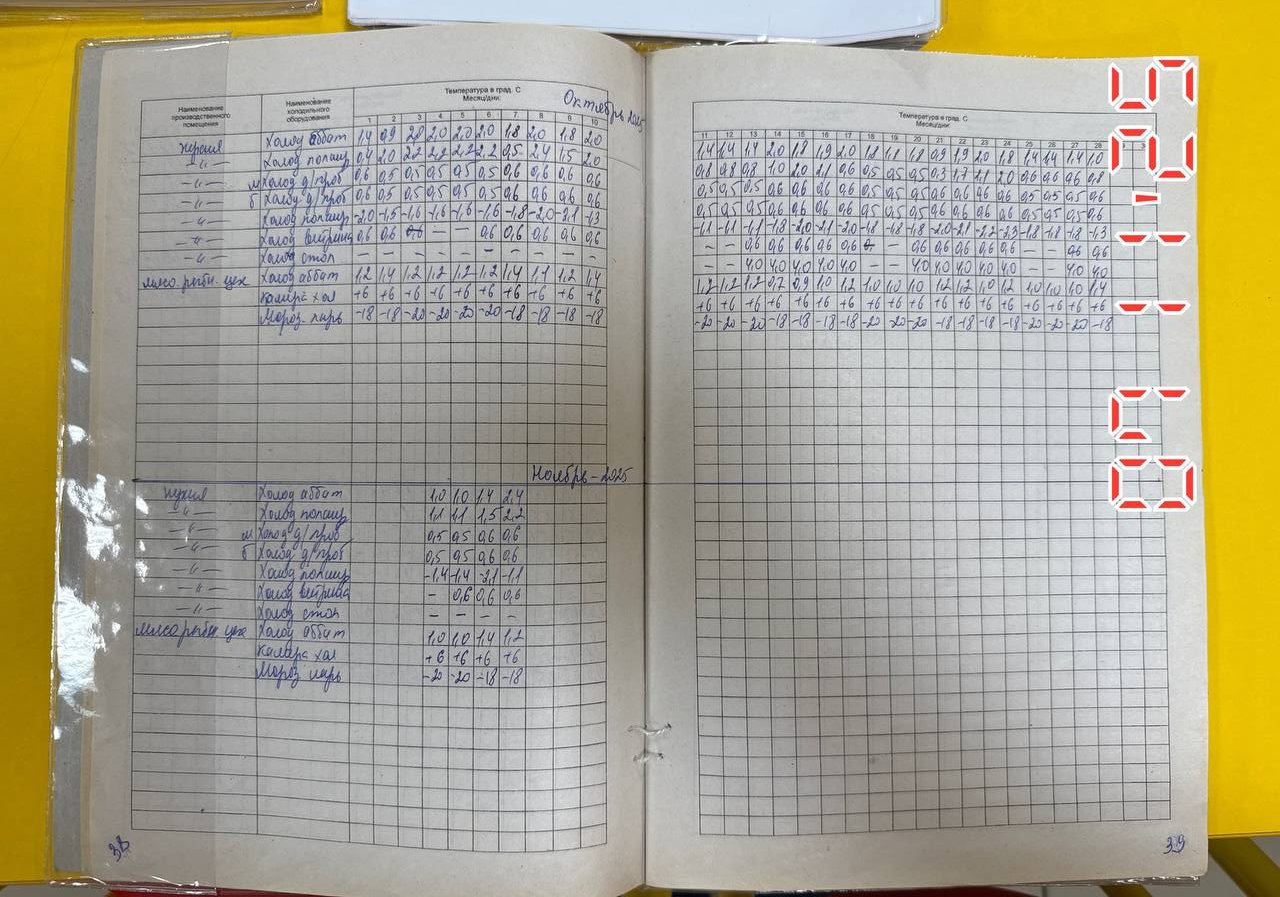 Наименование производственного помещения
Наименование холодильного оборудования
Температура в град. С
Месяц/дни:
Октябрь 2025
1 2 3 4 5 6 7 8 9 10
кухня Холод аббат 1,4 0,9 2,8 2,0 2,0 2,0 1,8 2,0 1,8 2,0
-"- Холод 0,4 2,0 2,2 2,2 2,2 2,2 0,5 2,4 1,5 2,0
-"- м Холод д/проб 0,6 0,5 0,5 0,5 0,5 0,5 0,6 0,6 0,6 0,6
-"- б Холод д/проб 0,6 0,5 0,5 0,5 0,5 0,5 0,6 0,6 0,6 0,6
-"- Холод -2,0 -1,5 -1,6 -1,6 -1,6 -1,6 -1,8 -2,0 -2,1 -1,3
-"- Холод витрина 0,6 0,6 — — 0,6 0,6 0,6 0,6 0,6
-"- Холод стол — — — — — — — — — —
мясо рыбн. цех Холод аббат 1,2 1,4 1,2 1,2 1,2 1,2 1,4 1,1 1,2 1,4
Камера хол +6 +6 +6 +6 +6 +6 +6 +6 +6 +6
Мороз ларь -18 -18 -20 -20 -20 -20 -18 -18 -18 -18
Ноябрь-2025
кухня Холод аббат 1,0 1,0 1,4 2,4
-"- Холод 1,1 1,1 1,5 2,2
-"- м Холод д/проб 0,5 0,5 0,6 0,6
-"- б Холод д/проб 0,5 0,5 0,6 0,6
-"- Холод -1,4 -1,4 -2,1 -1,1
-"- Холод витрина – 0,6 0,6 0,6
-"- Холод стол – – – –
мясо рыбн. цех Холод аббат 1,0 1,0 1,4 1,2
Камера хол +6 +6 +6 +6
Мороз ларь -20 -20 -18 -18
38
Температура в град. С
Месяц/дни:
11 12 13 14 15 16 17 18 19 20 21 22 23 24 25 26 27 28
1,4 1,4 1,4 2,0 1,8 1,9 2,0 1,8 1,8 1,8 0,9 1,9 2,0 1,8 1,4 1,4 1,4 1,0
0,8 0,8 0,8 1,0 2,0 2,1 0,6 0,5 0,5 0,5 0,3 1,7 1,1 2,0 0,6 0,6 0,6 0,8
0,5 0,5 0,5 0,6 0,6 0,6 0,6 0,5 0,5 0,5 0,6 0,6 0,6 0,6 0,5 0,5 0,5 0,6
0,5 0,5 0,5 0,6 0,6 0,6 0,6 0,5 0,5 0,5 0,6 0,6 0,6 0,6 0,5 0,5 0,5 0,6
-1,1 -1,1 -1,1 -1,8 -2,0 -2,1 -2,0 -1,8 -1,8 -1,8 -2,0 -2,1 -2,2 -2,3 -1,8 -1,8 -1,8 -1,3
– – 0,6 0,6 0,6 0,6 0,6 – 0,6 0,6 0,6 0,6 0,6 0,6 0,6
– – 4,0 4,0 4,0 4,0 4,0 – – 4,0 4,0 4,0 4,0 4,0 – – 4,0 4,0
1,2 1,2 1,2 0,7 0,9 1,0 1,2 1,0 1,0 1,0 1,2 1,2 1,0 1,2 1,0 1,0 1,0 1,4
+6 +6 +6 +6 +6 +6 +6 +6 +6 +6 +6 +6 +6 +6 +6 +6 +6 +6
-20 -20 -20 -18 -18 -18 -18 -20 -20 -20 -18 -18 -18 -18 -20 -20 -20 -18
39